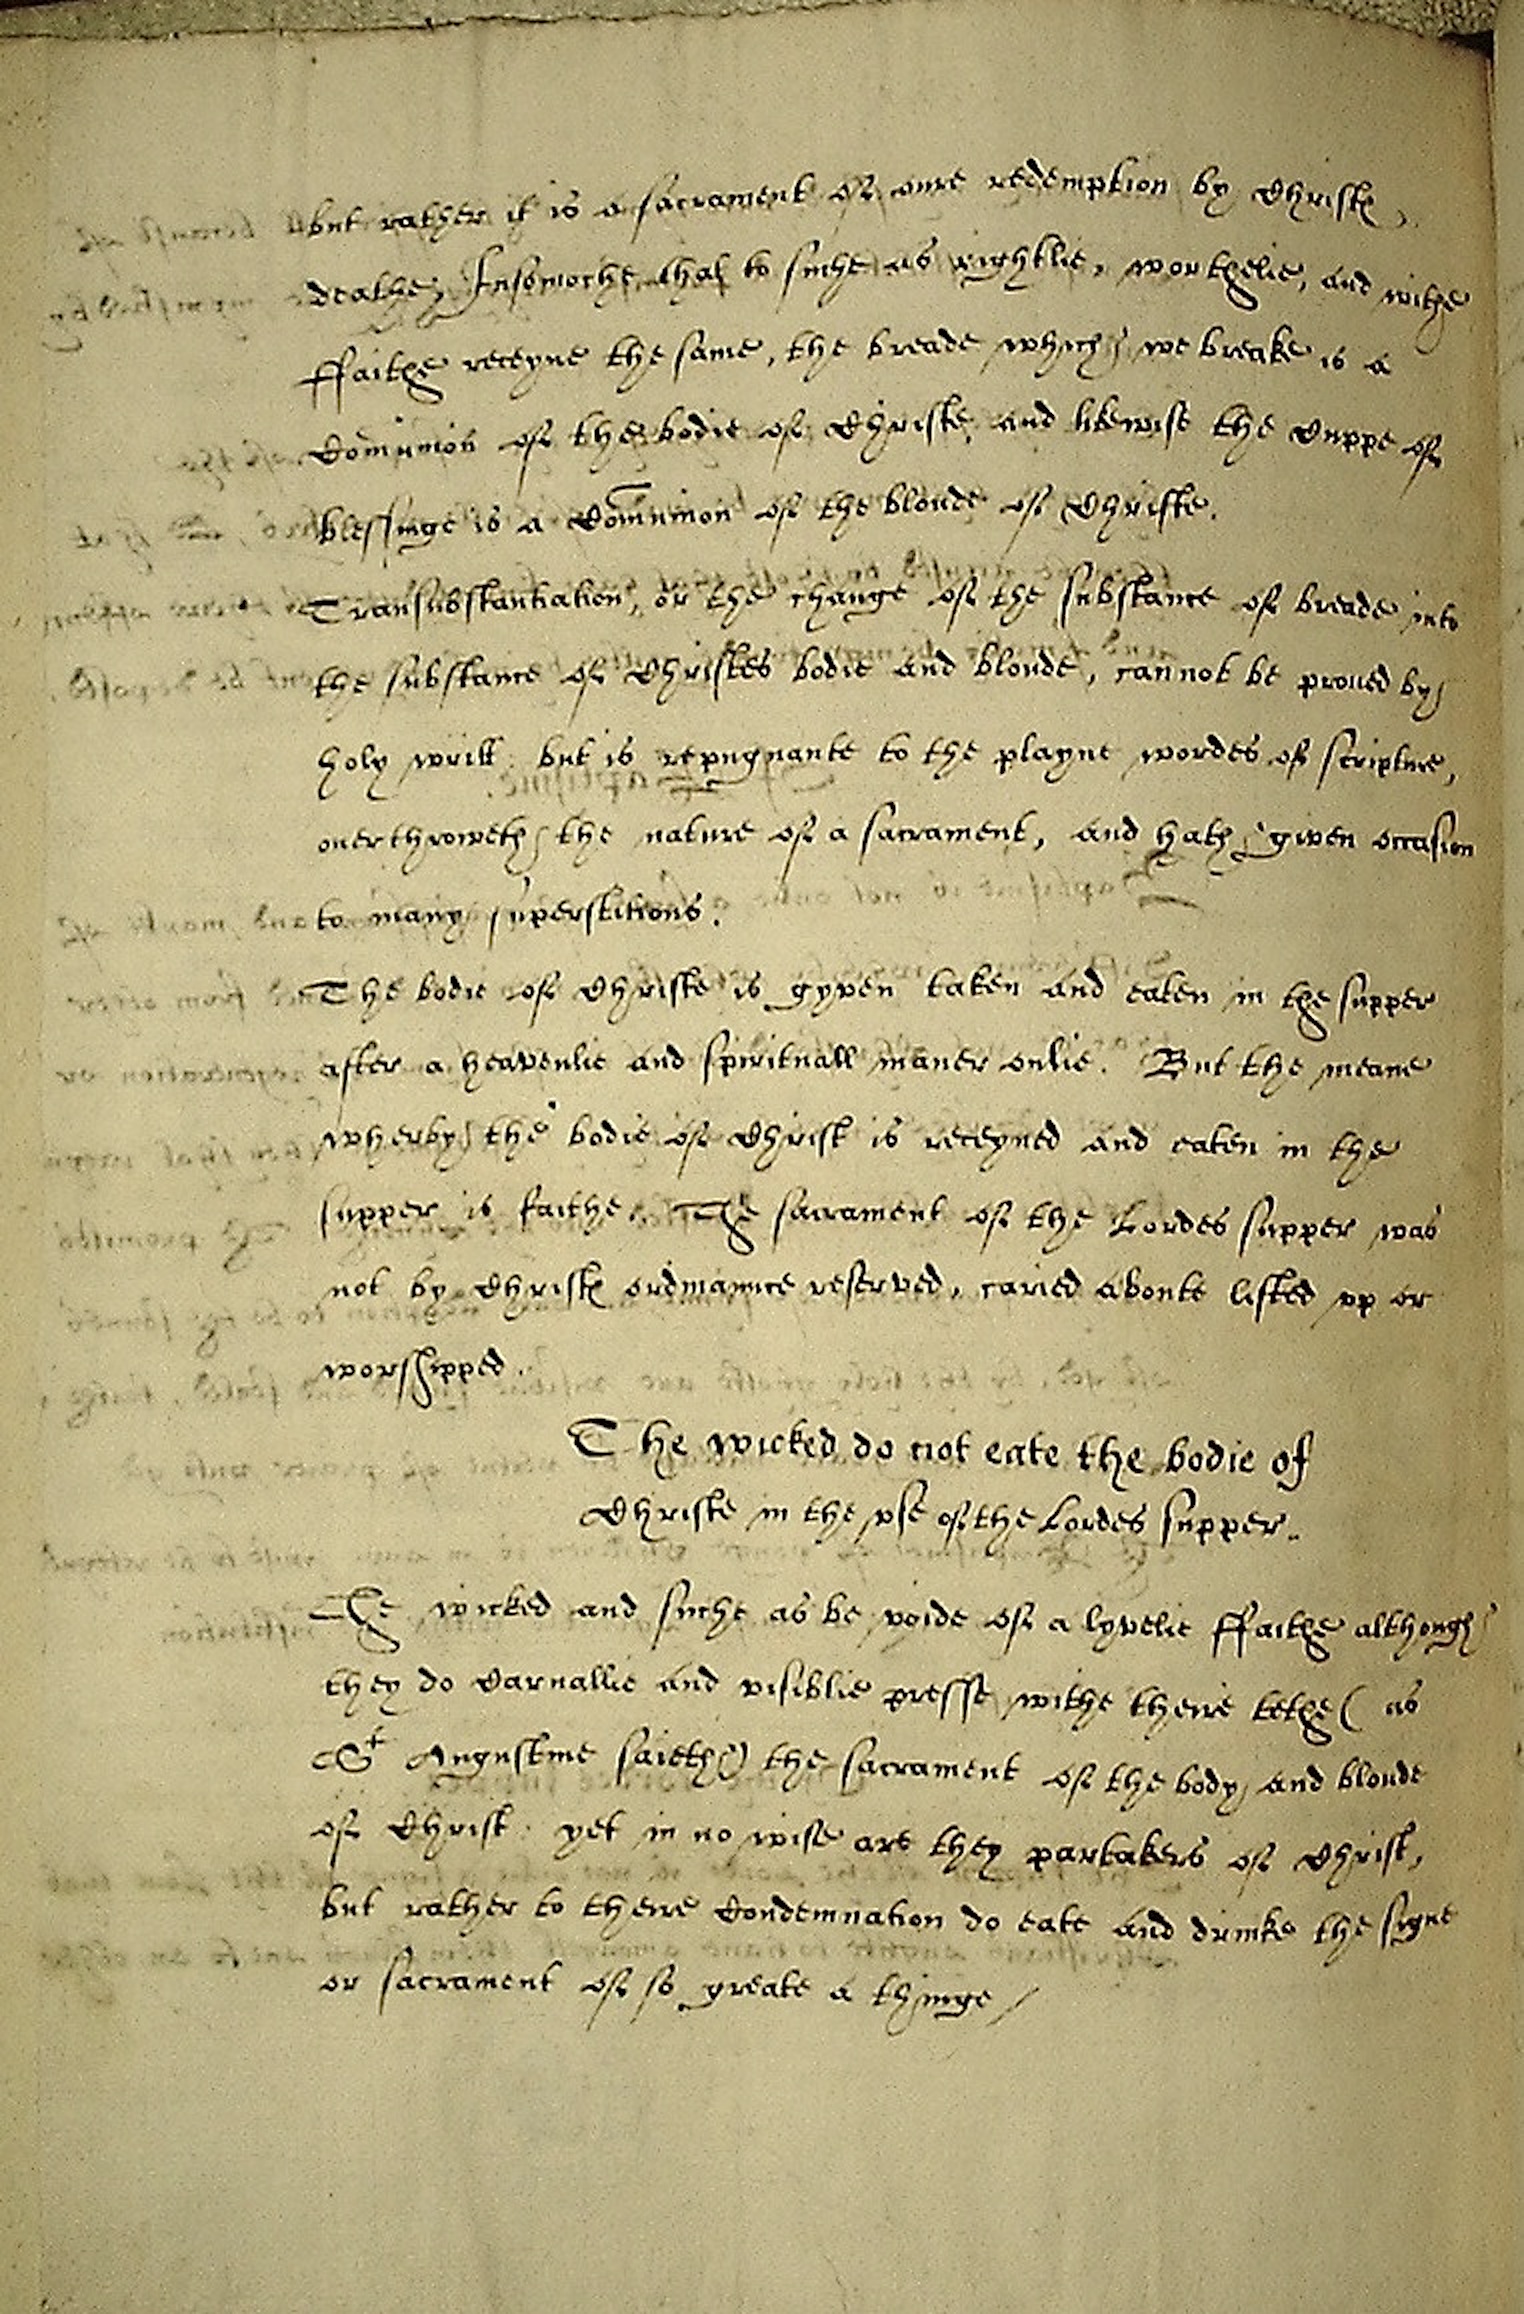 but rather it is a sacrament of oure redemption by Christes
deathe, Insomoche that to suche as rightlie, worthelie, and withe
ffaithe receyue the same, the breade which we breake is a
Comunion of the bodie of Christe, and likewise the Cuppe of
blessinge is a Comunion of the bloude of Christe.
Transubstantiation, or the change of the substance of breade into
the substance of Christes bodie and bloude, cannot be proued by
holy writt, but is repugnante to the playne wordes of scripture,
ouerthroweth the nature of a sacrament, and hath given occasion
to many superstitions.
The bodie of Christe is gyven taken and eaten in the supper
after a heavenlie and spirituall maner onlie. But the meane
wherby the bodie of Christ is receyued and eaten in the
supper is faithe. The sacrament of the Lordes supper was
not by Christes ordinaunce reserved, caried aboute lifted vp or
worshipped.
The wicked do not eate the bodie of
Christe in the vse of the Lordes supper.
The wicked and suche as be voide of a lyvelie ffaithe although
they do Carnallie and visiblie presse withe theire tethe (as
St Augustine saieth) the sacrament of the body and bloude
of Christ. yet in no wise are they partakers of Christ,
but rather to theire Condemnation do eate and drinke the signe
or sacrament of so greate a thinge /